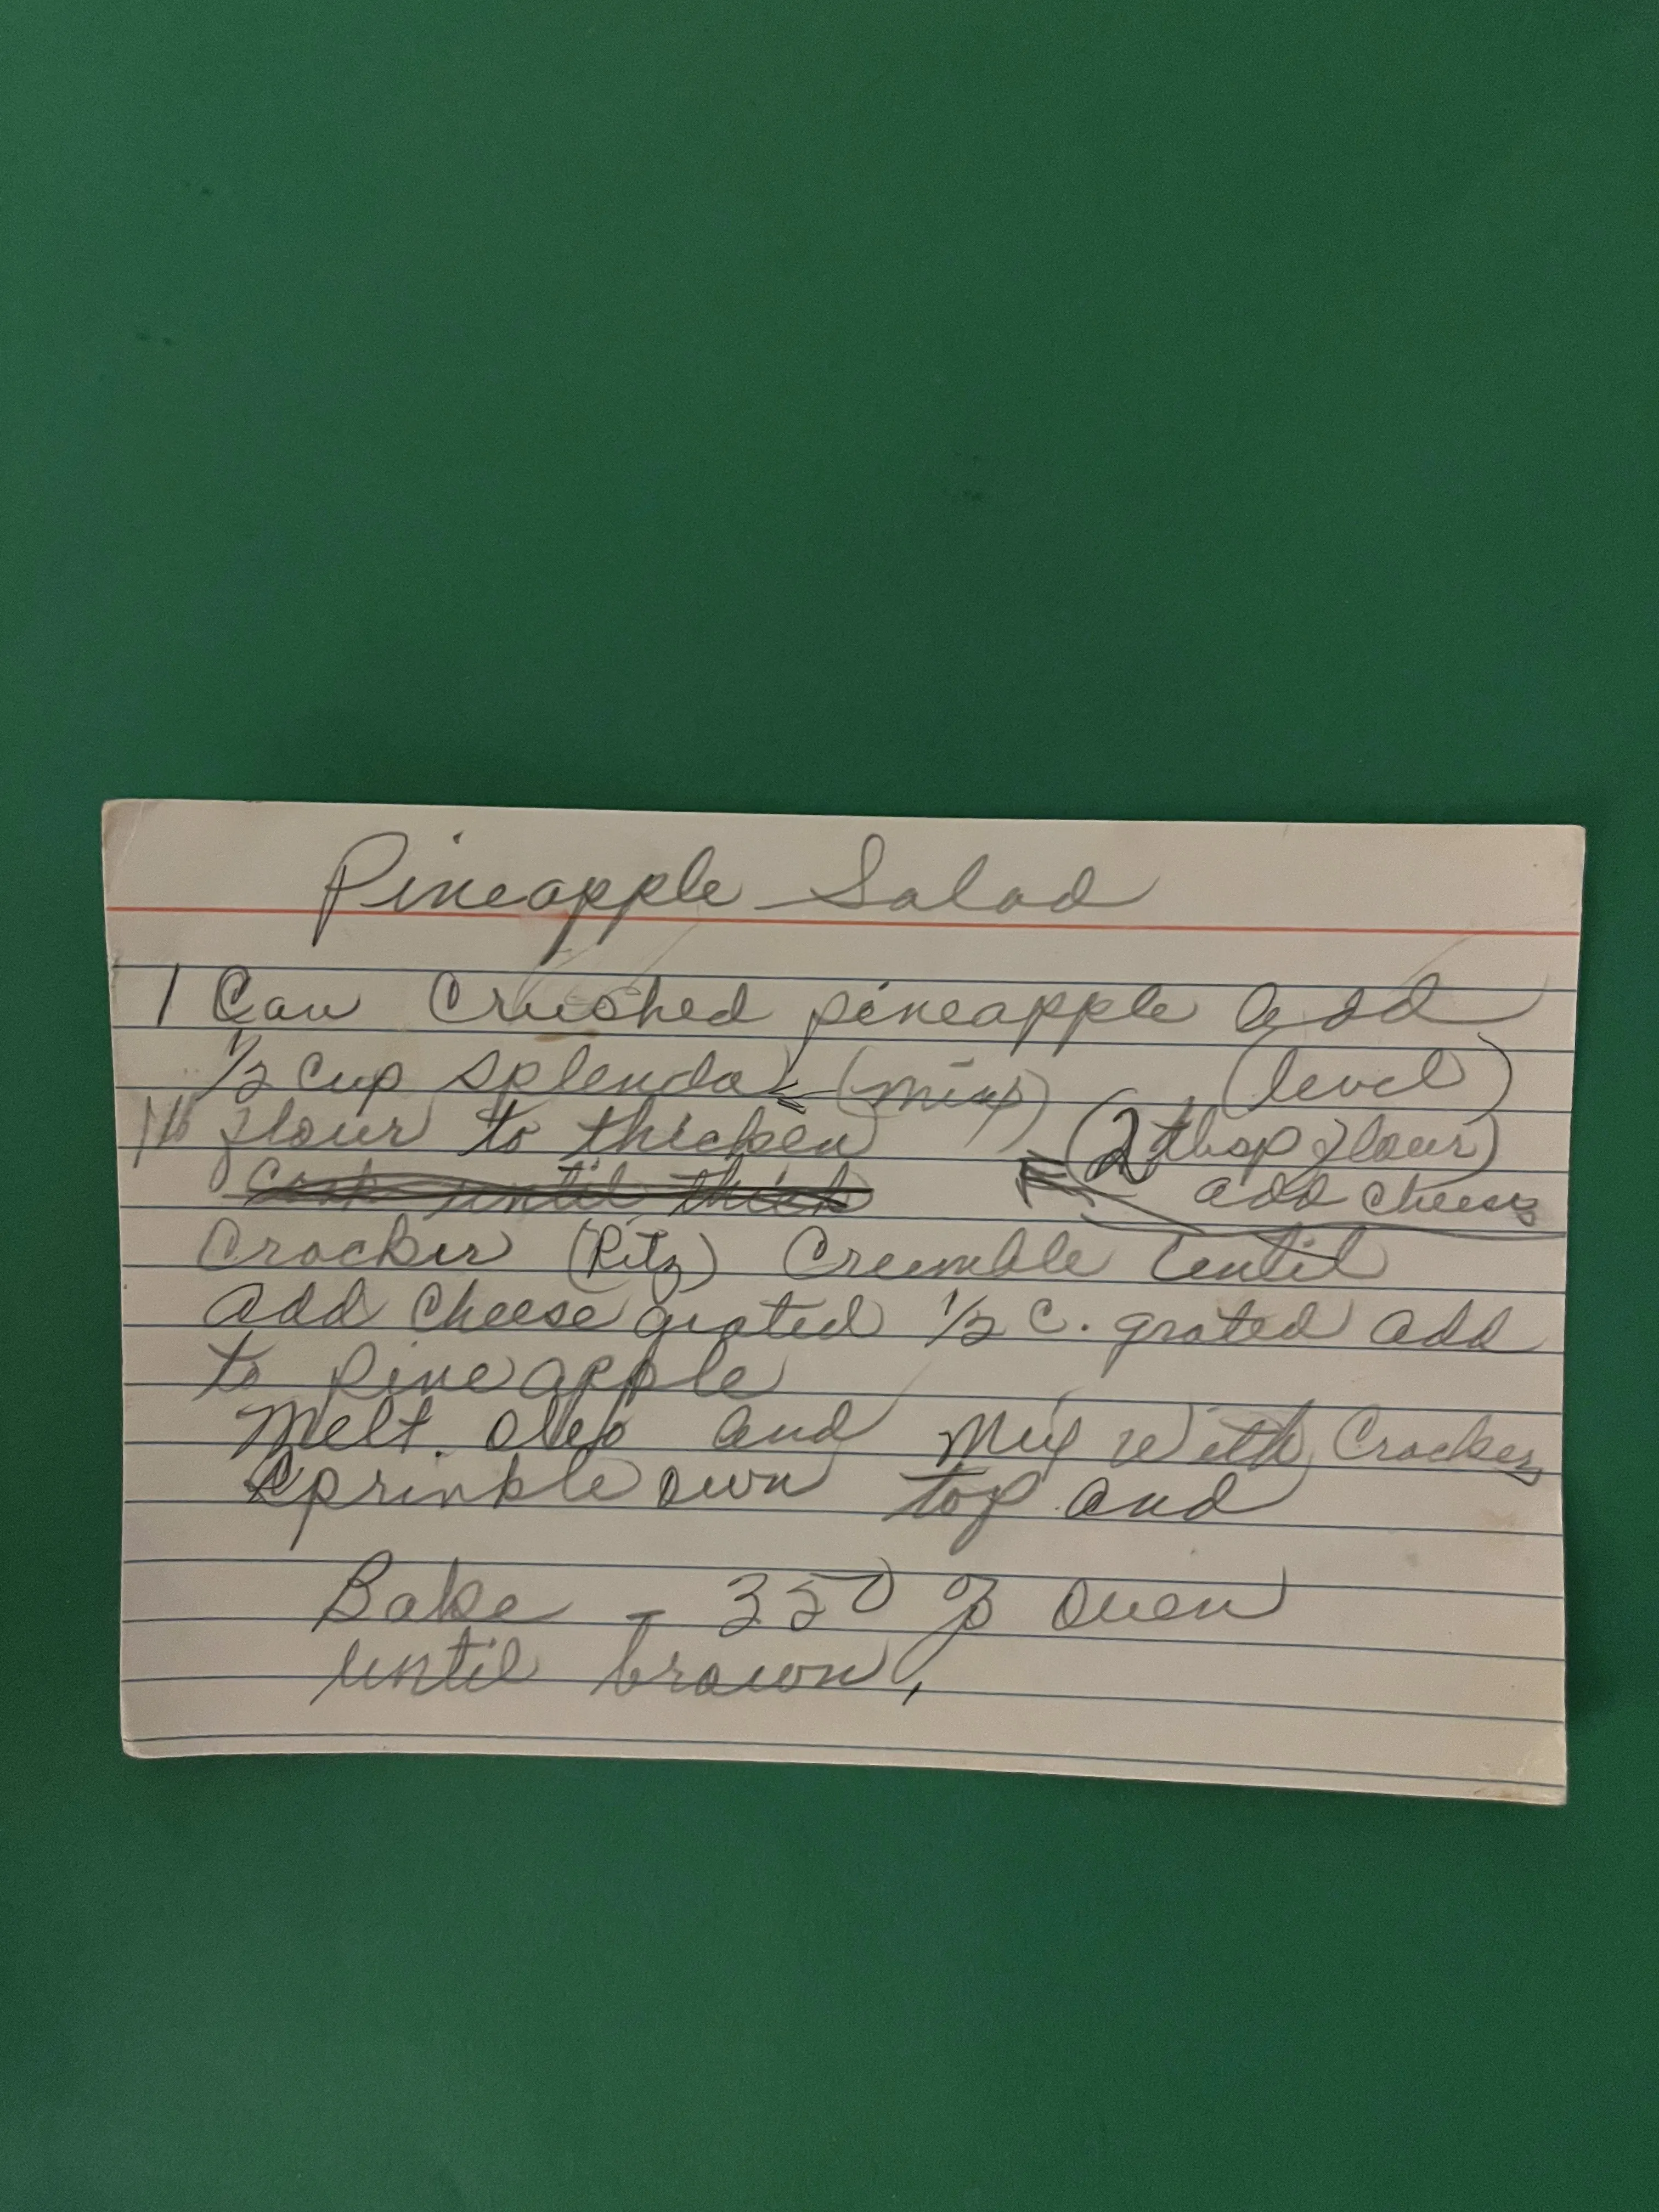 Pineapple Salad
1 Can Crushed pineapple add
1/2 cup splenda (mix) (level)
flour to thicken (2 tbsp flour)
Cook until thick add cheese
Cracker (Ritz) Crumble until
add cheese grated 1/2 c. grated add
to pineapple
Melt. oleo and Mix with Crackers
Sprinkle own top and
Bake - 350 % oven
until brown,